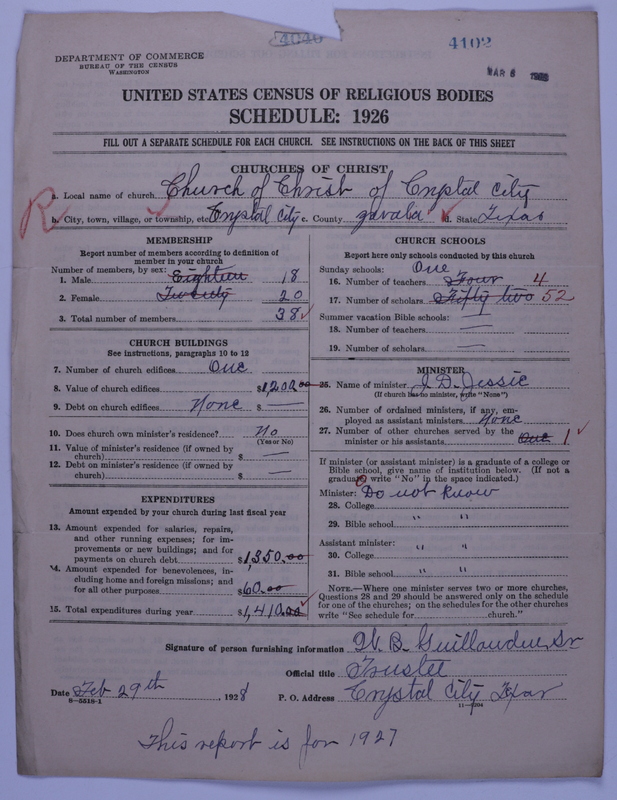 4040
4102
MAR 6
DEPARTMENT OF COMMERCE
BUREAU OF THE CENSUS
WASHINGTON
UNITED STATES CENSUS OF RELIGIOUS BODIES
SCHEDULE: 1926
FILL OUT A SEPARATE SCHEDULE FOR EACH CHURCH. SEE INSTRUCTIONS ON THE BACK OF THIS SHEET
CHURCHES OF CHRIST
R
a. Local name of church Church of Christ of Crystal City
b. City, town, village, or township, etc. Crystal City c. County zavala d. State Texas
MEMBERSHIP
Report number of members according to definition of
member in your church
Number of members, by sex:
1. Male Eighteen 18
2. Female Twenty 20
3. Total number of members 38
CHURCH BUILDINGS
See instructions, paragraphs 10 to 12
7. Number of church edifices One
8. Value of church edifices $1,200.00
9. Debt on church edifices None $ —
10. Does church own minister's residence? No
(Yes or No)
11. Value of minister's residence (if owned by
church) $ —
12. Debt on minister's residence (if owned by
church) $ —
EXPENDITURES
Amount expended by your church during last fiscal year
13. Amount expended for salaries, repairs,
and other running expenses; for im-
provements or new buildings; and for
payments on church debt $1,350.00
14. Amount expended for benevolences, in-
cluding home and foreign missions; and
for all other purposes $60.00
15. Total expenditures during year $1,410.00
CHURCH SCHOOLS
Report here only schools conducted by this church
Sunday schools: One
16. Number of teachers Four 4
17. Number of scholars Fifty two 52
Summer vacation Bible schools: —
18. Number of teachers —
19. Number of scholars —
MINISTER
25. Name of minister J. D. Jessie
(If church has no minister, write "None")
26. Number of ordained ministers, if any, em-
ployed as assistant ministers None
27. Number of other churches served by the
minister or his assistants One 1
If minister (or assistant minister) is a graduate of a college or
Bible school, give name of institution below. (If not a
graduate write "No" in the space indicated.)
Minister: Do not know
28. College
29. Bible school " "
Assistant minister:
30. College " "
31. Bible school " "
NOTE.—Where one minister serves two or more churches,
Questions 28 and 29 should be answered only on the schedule
for one of the churches; on the schedules for the other churches
write "See schedule for church."
Signature of person furnishing information W. B. Sr
Official title Trustee
Date Feb 29th, 1928 P. O. Address Crystal City Texas
8—5518-1
This report is for 1927